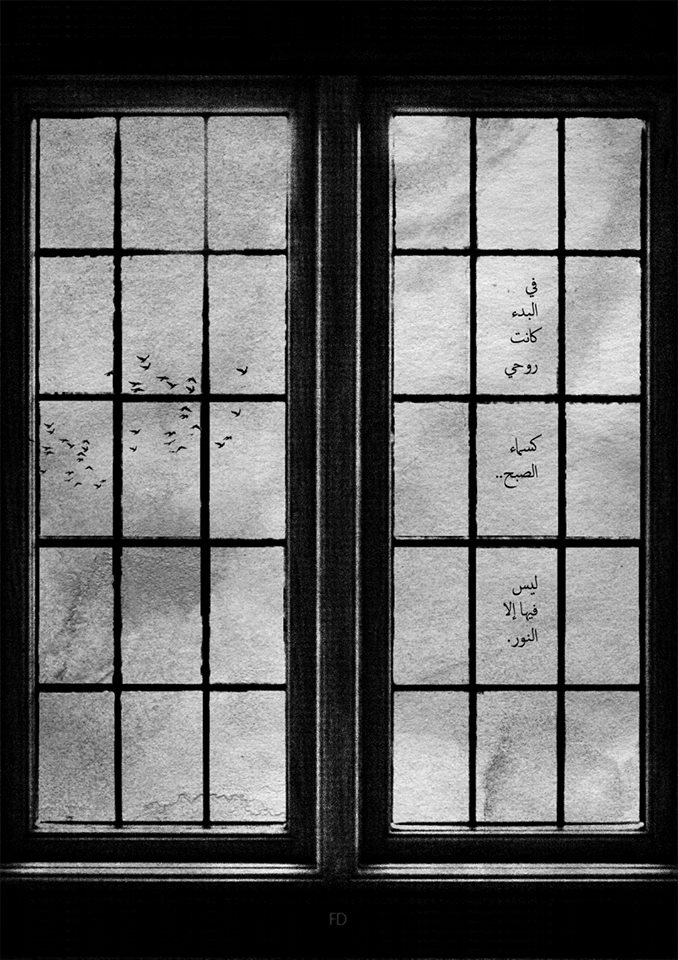 في
البدء
كانت
روحي
كسماء
الصبح..
ليس
فيها إلا
النور.
FD